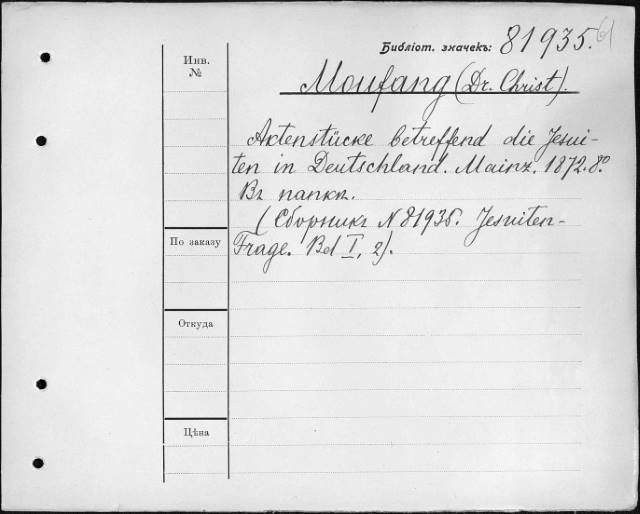 Библіот. значекъ: 81935.
Инв. №
Moufang (Dr. Christ).
Aktenstücke betreffend die Jesui-
ten in Deutschland. Mainz. 1872. 8º
Въ папкѣ.
(Сборникъ N 81935. Jesuiten-
Frage. Bd I, 2).
По заказу
Откуда
Цѣна